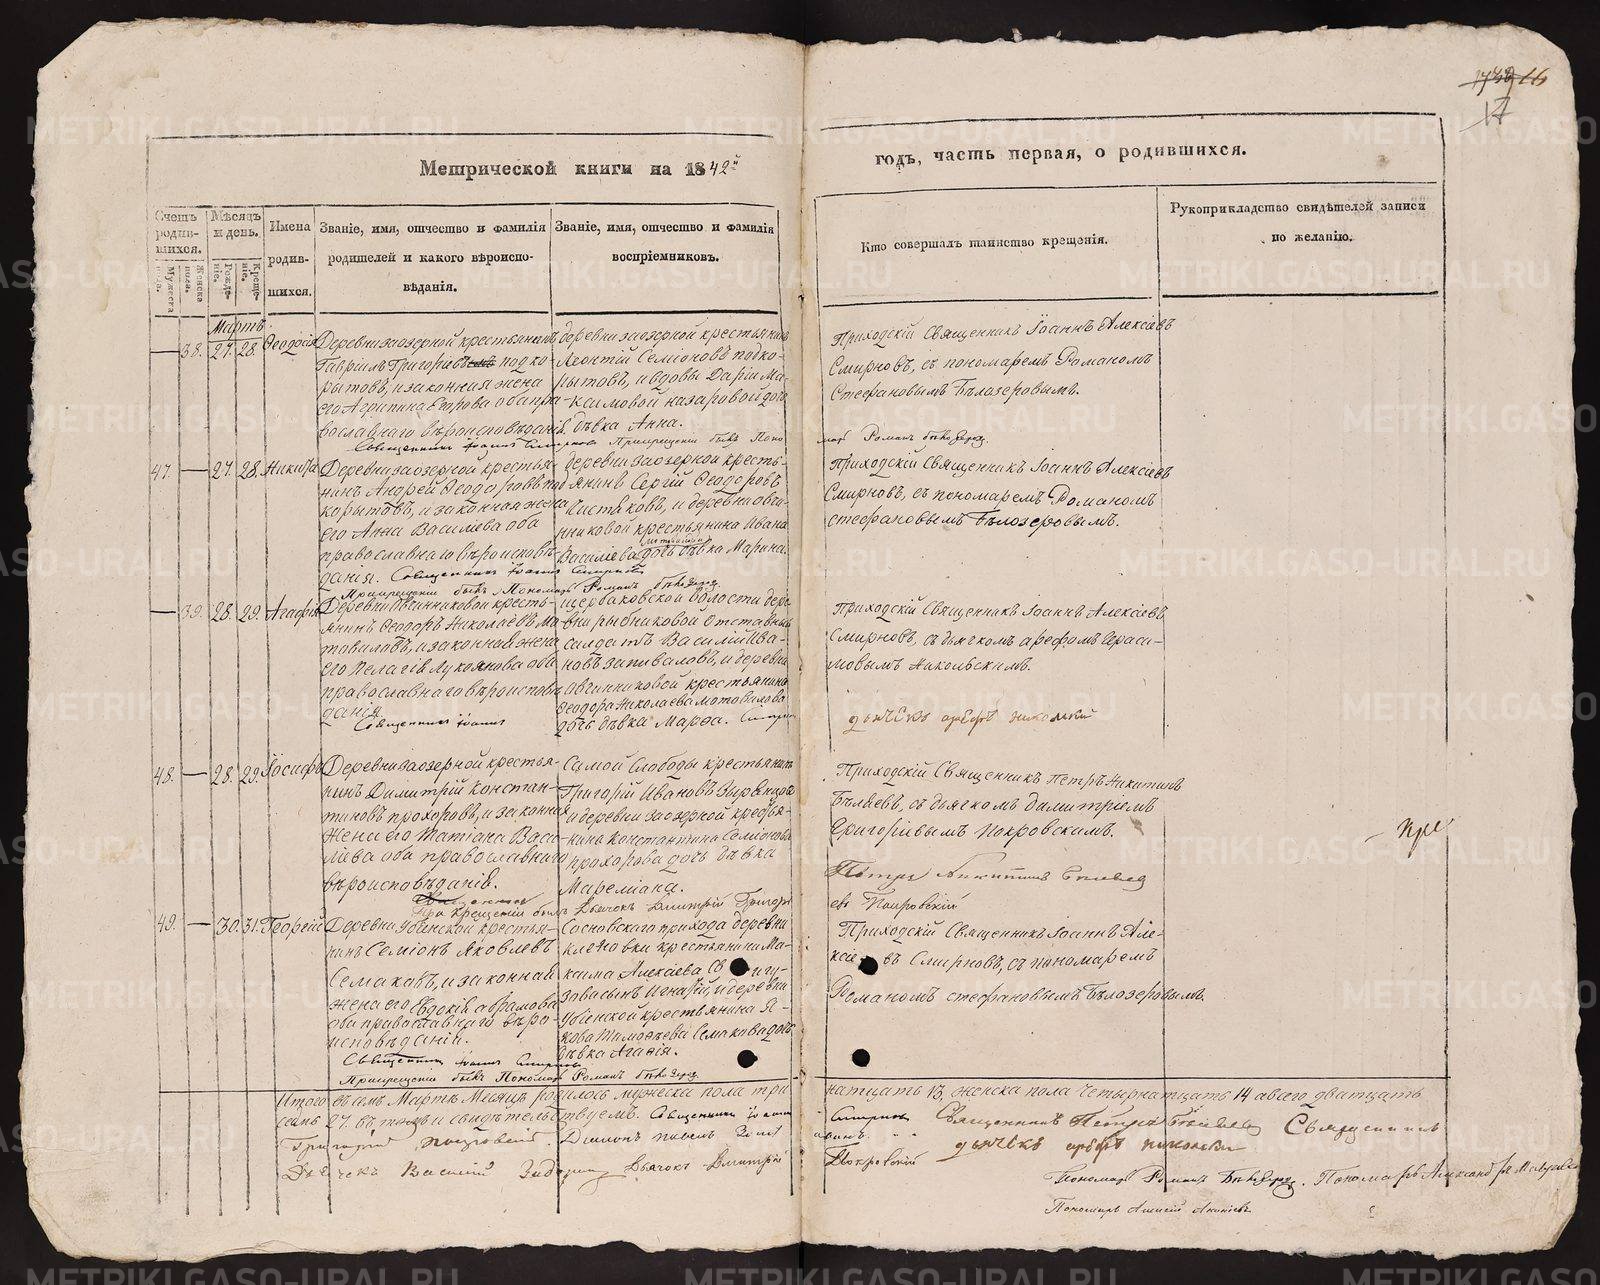 17
Метрической книги на 1842й
годъ, часть первая, о родившихся.
Счетъ родившихся.
Мужеска пола.
Женска пола.
Мѣсяцъ и день.
Рожденіе.
Крещеніе.
Имена родившихся.
Званіе, имя, отчество и фамилія родителей и какого вѣроисповѣданія.
Званіе, имя, отчество и фамилія воспріемниковъ.
Кто совершалъ таинство крещенія.
Рукоприкладство свидѣтелей записи по желанію.
Мартъ
38. 27. 28. Ѳеодосія
Деревни заозерной крестьянинъ
Гавріилъ Григорьевъ подко-
рытовъ, и законная жена
его Агрипина Егорова оба пра-
вославнаго вѣроисповѣданія.
деревни заозерной крестьянинъ
Леонтій Семіоновъ подко-
рытовъ, и вдовы Даріи Ма-
ксимовой назаровой дочь
дѣвка Анна.
Приходскій Священникъ Іоаннъ Алексіевъ
Смирновъ, съ пономаремъ Романомъ
Стефановымъ Бѣлозеровымъ.
Священникъ Іоаннъ Смирновъ При крещеніи былъ Поно
марь Романъ Бѣлозеровъ
47. — 27. 28. Никита
Деревни заозерной крестья-
нинъ Андрей Ѳеодоровъ под
корытовъ, и законная жена
его Анна Василіева оба
православнаго вѣроисповѣ-
данія. Священникъ Іоаннъ Смирновъ
При крещеніи былъ Пономарь Романъ Бѣлозеровъ
деревни заозерной кресть-
янинъ Сергій Ѳеодоровъ
Чистяковъ, и деревни овчи-
нниковой крестьянина Ивана
Василіева дочь дѣвка Марина.
Приходскій Священникъ Іоаннъ Алексіевъ
Смирновъ, съ пономаремъ Романомъ
стефановымъ Бѣлозеровымъ.
— 39. 28. 29. Агафія
Деревни Овчинниковой кресть-
янинъ Ѳеодоръ Николаевъ Мо-
товиловъ, и законная жена
его Пелагія Лукоянова оба
православнаго вѣроисповѣ
данія
Священникъ Іоаннъ
щербаковской волости дере
вни рыбниковой отставный
салдатъ Василій Ива-
новъ запиваловъ, и деревни
Овчинниковой крестьянина
Ѳеодора Николаева мотовилова
дочь дѣвка Марѳа.
Приходскій Священникъ Іоаннъ Алексіевъ
Смирновъ, съ дьячкомъ арефомъ Гераси-
мовымъ никольскимъ.
48. — 28. 29. Іосифъ
Деревни заозерной крестья-
нинъ Димитрій Констан-
тиновъ прохоровъ, и законная
жена его Татіана Васи-
ліева оба православнаго
вѣроисповѣданія.
При крещеніи былъ Дьячокъ Димитрій Григорі
Самой Слободы крестьянинъ
Григорій Ивановъ Зырянцовъ
и деревни заозерной крестья-
нина Константина Семіонова
прохорова дочь дѣвка
Мареміана.
Приходскій Священникъ Петръ Никитинъ
Бѣляевъ, съ дьячкомъ димитріемъ
Григоріевымъ покровскимъ.
Петръ Никитинъ Бѣляевъ
евъ Покровскій
49. — 30. 31. Георгій
Деревни Убіенской крестья-
нинъ Семіонъ Яковлевъ
Семаковъ, и законная
жена его Евдокія абрамова
оба православнаго вѣро-
исповѣданія.
Священникъ Іоаннъ Смирновъ
При крещеніи былъ Пономарь Романъ Бѣлозеровъ
Сосновскаго прихода деревни
клевовки крестьянина Ма-
ксима Алексіева
сынъ Игнатій, и деревни
Убіенской крестьянина Я-
кова Тимоѳеева Семакова дочь
дѣвка Агафія.
Приходскій Священникъ Іоаннъ Але-
ксіевъ Смирновъ, съ пономаремъ
Романомъ стефановымъ Бѣлозеровымъ.
Итого въ семъ Мартѣ Месяцѣ родилось мужеска пола три
натцать 13, женска пола четырнатцать 14 а всего дватцать
семь 27. въ томъ и свидѣтельствуемъ. Священникъ Іоаннъ
Смирновъ Священникъ Петръ Бѣляевъ Священникъ
Григорій Покровскій. Діаконъ Павелъ
Дьячокъ Василій Дьячокъ Димитрій
Покровскій
Пономарь Романъ Бѣлозеровъ. Пономарь Александръ
Пономарь Алексій